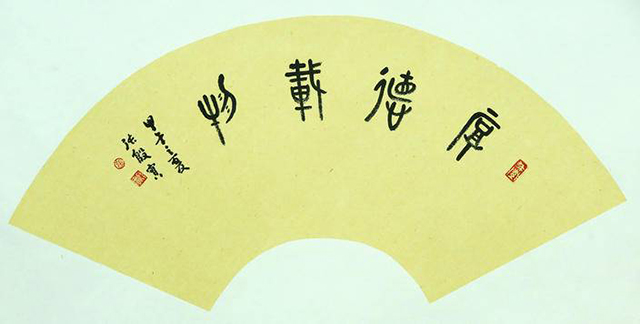 厚德載物
甲午之夏
張殷